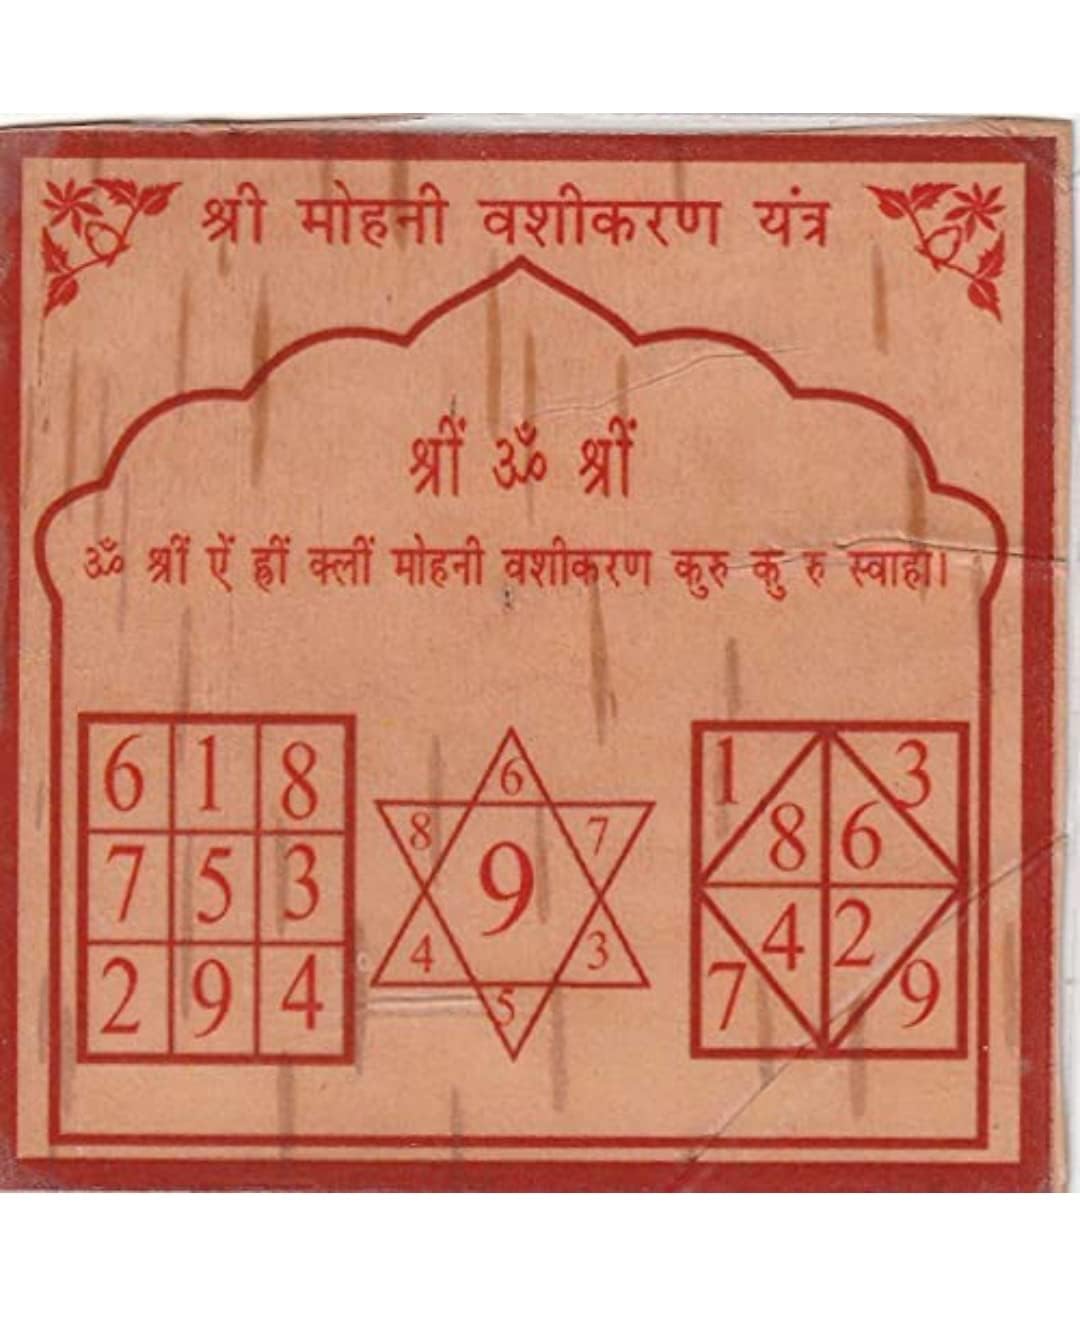 श्री मोहनी वशीकरण यंत्र
श्रीं ॐ श्रीं
ॐ श्रीं ऐं ह्रीं क्लीं मोहनी वशीकरण कुरु कु रु स्वाहा।
6 1 8
7 5 3
2 9 4
6
8 7
9
4 3
5
1 3
8 6
4 2
7 9